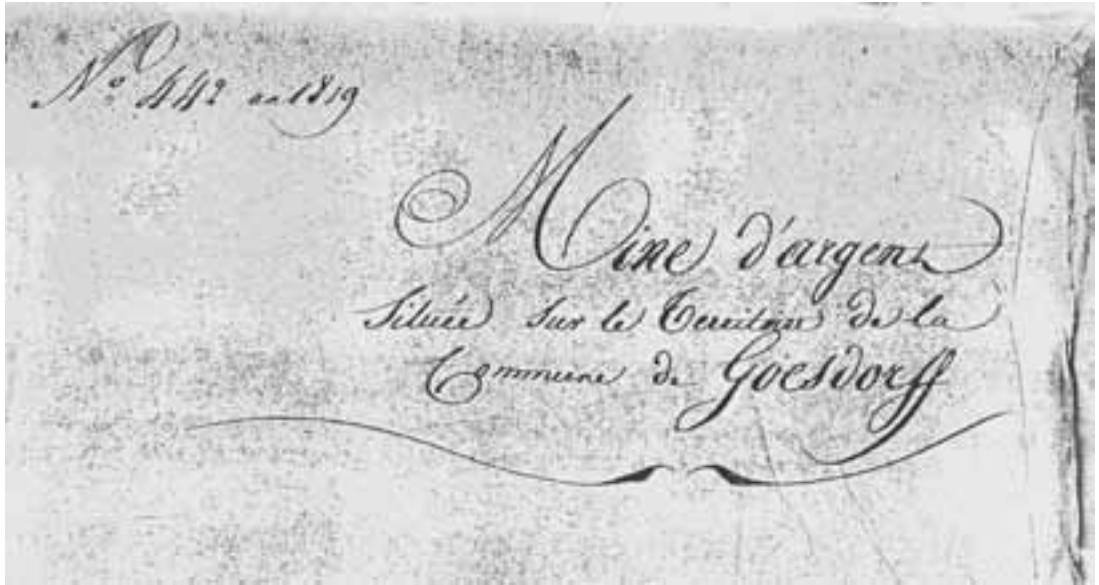 Nº 442 an 1819
Mine d'argent
Située sur le Territoire de la
Commune de Goesdorff